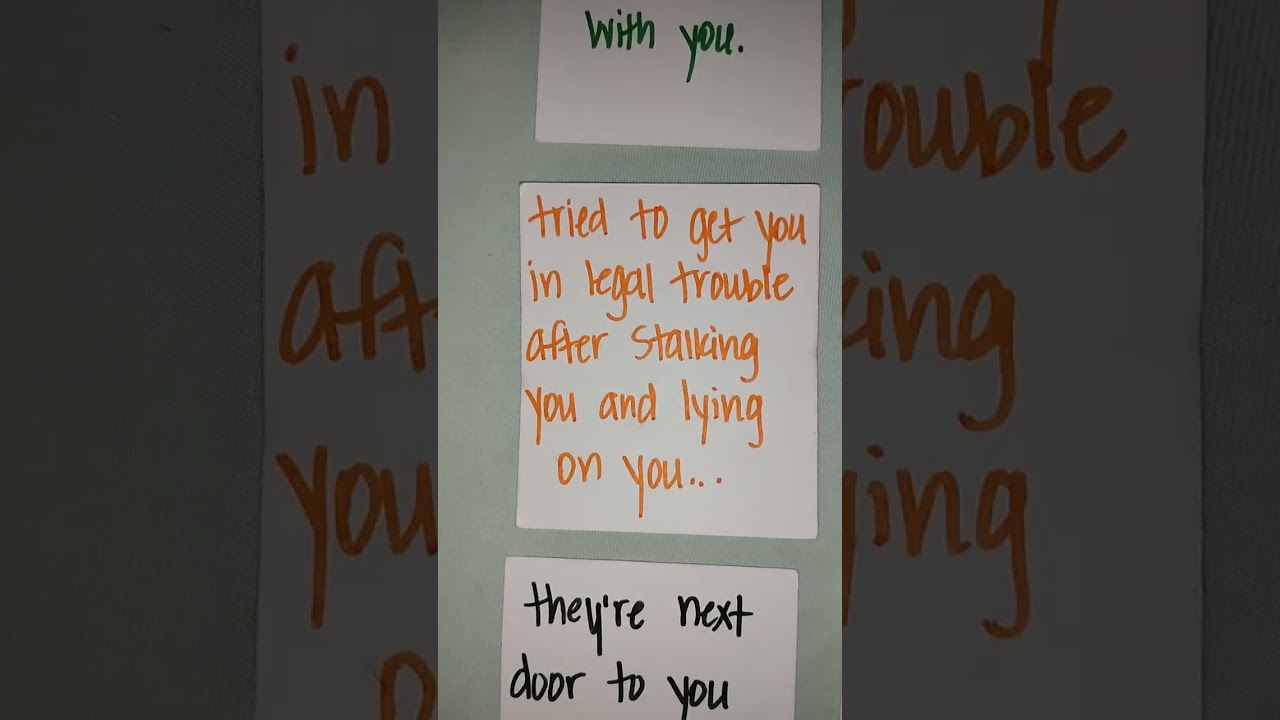 with you.
tried to get you
in legal trouble
after stalking
you and lying
on you...
they're next
door to you